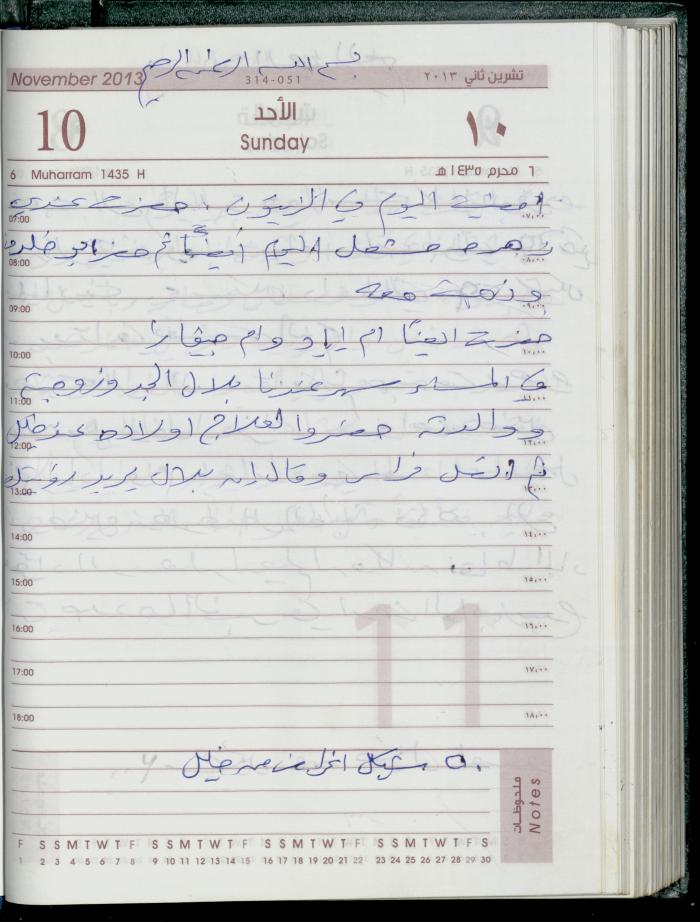 بسم الله الرحمن الرحيم
November 2013
314-051
تشرين ثاني ٢٠١٣
10
الأحد
Sunday
١٠
6 Muharram 1435 H
٦ محرم ١٤٣٥هـ
اليوم في الزيتون . حضرت عندي
07:00 ٠٧,٠٠
زهرة مشعل اليوم أيضًا ثم حضر ابو خلدون
08:00 ٠٨,٠٠
و معه
09:00 ٠٩,٠٠
حضرت ايضًا ام اياد وام جيفارا
10:00 ١٠,٠٠
في المساء سهر عندنا بلال الجد وزوجته
11:00 ١١,٠٠
ووالدته حضروا لعلاج اولاده عند خليل
12:00 ١٢,٠٠
ثم اتصل فراس وقال إن بلال يريد رؤيتك
13:00 ١٣,٠٠
14:00 ١٤,٠٠
15:00 ١٥,٠٠
16:00 ١٦,٠٠
17:00 ١٧,٠٠
18:00 ١٨,٠٠
11
٥٠ شيكل من خليل
ملحوظات
Notes
F S S M T W T F S S M T W T F S S M T W T F S S M T W T F S
1 2 3 4 5 6 7 8 9 10 11 12 13 14 15 16 17 18 19 20 21 22 23 24 25 26 27 28 29 30